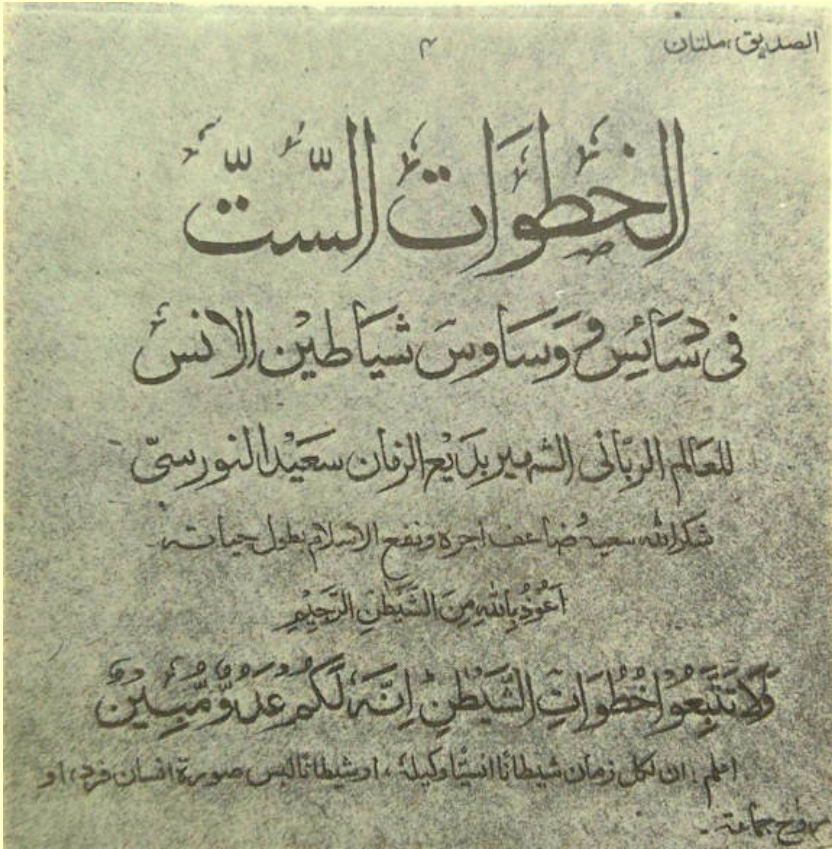 الصديق، ملتان ٣
الخُطوَات السّتّ
فى دسَائِس وَسَاوسَ شيَاطيْن الانس
للعَالم الربّانى الشهير بدَيع الزمان سعَيْد النورسىّ
شكر الله سعيهٗ ضاعف اجره ونفع الاسلام بطول حياته
اَعُوْذُ بِاللهِ مِنَ الشَّيْطٰنِ الرَّجِيْمِ
وَلَا تَتَّبِعُوْا خُطُوَاتِ الشَّيْطٰنِ اِنَّهٗ لَكُمْ عَدُوٌّ مُّبِيْنٌ
اعلم: ان لكل زمان شيطانًا انسيًّا وكيلهٗ، او شيطانًا لبس صورة انسان فرد، او
روح جماعة۔